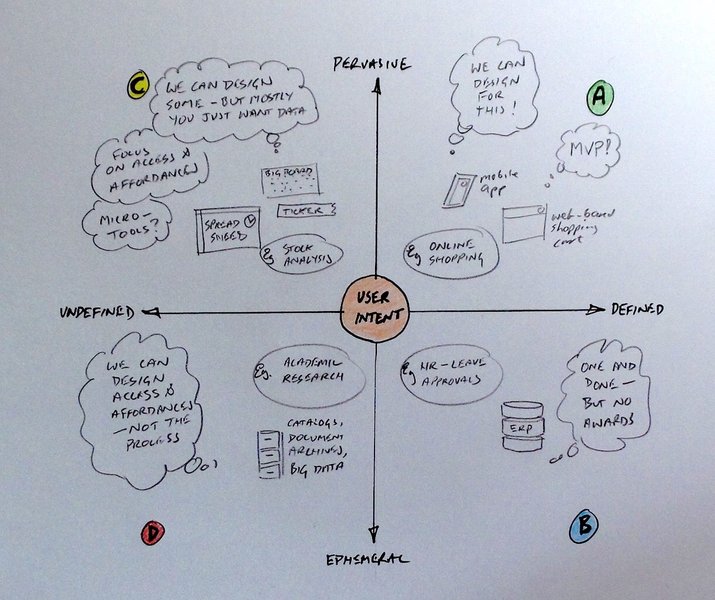 PERVASIVE
C
WE CAN DESIGN
SOME - BUT MOSTLY
YOU JUST WANT DATA
FOCUS
ON ACCESS &
AFFORDANCES
MICRO-
TOOLS?
BIG BOARD
TICKER
SPREAD
SHEET
Eg
STOCK
ANALYSIS
WE CAN
DESIGN
FOR
THIS!
A
MVP!
mobile
app
web-based
shopping
cart
Eg
ONLINE
SHOPPING
UNDEFINED
USER
INTENT
DEFINED
WE CAN
DESIGN
ACCESS &
AFFORDANCES
- NOT THE
PROCESS
Eg.
ACADEMIC
RESEARCH
CATALOGS,
DOCUMENT
ARCHIVES,
BIG DATA
D
Eg
HR-LEAVE
APPROVALS
ERP
ONE AND
DONE -
BUT NO
AWARDS
B
EPHEMERAL